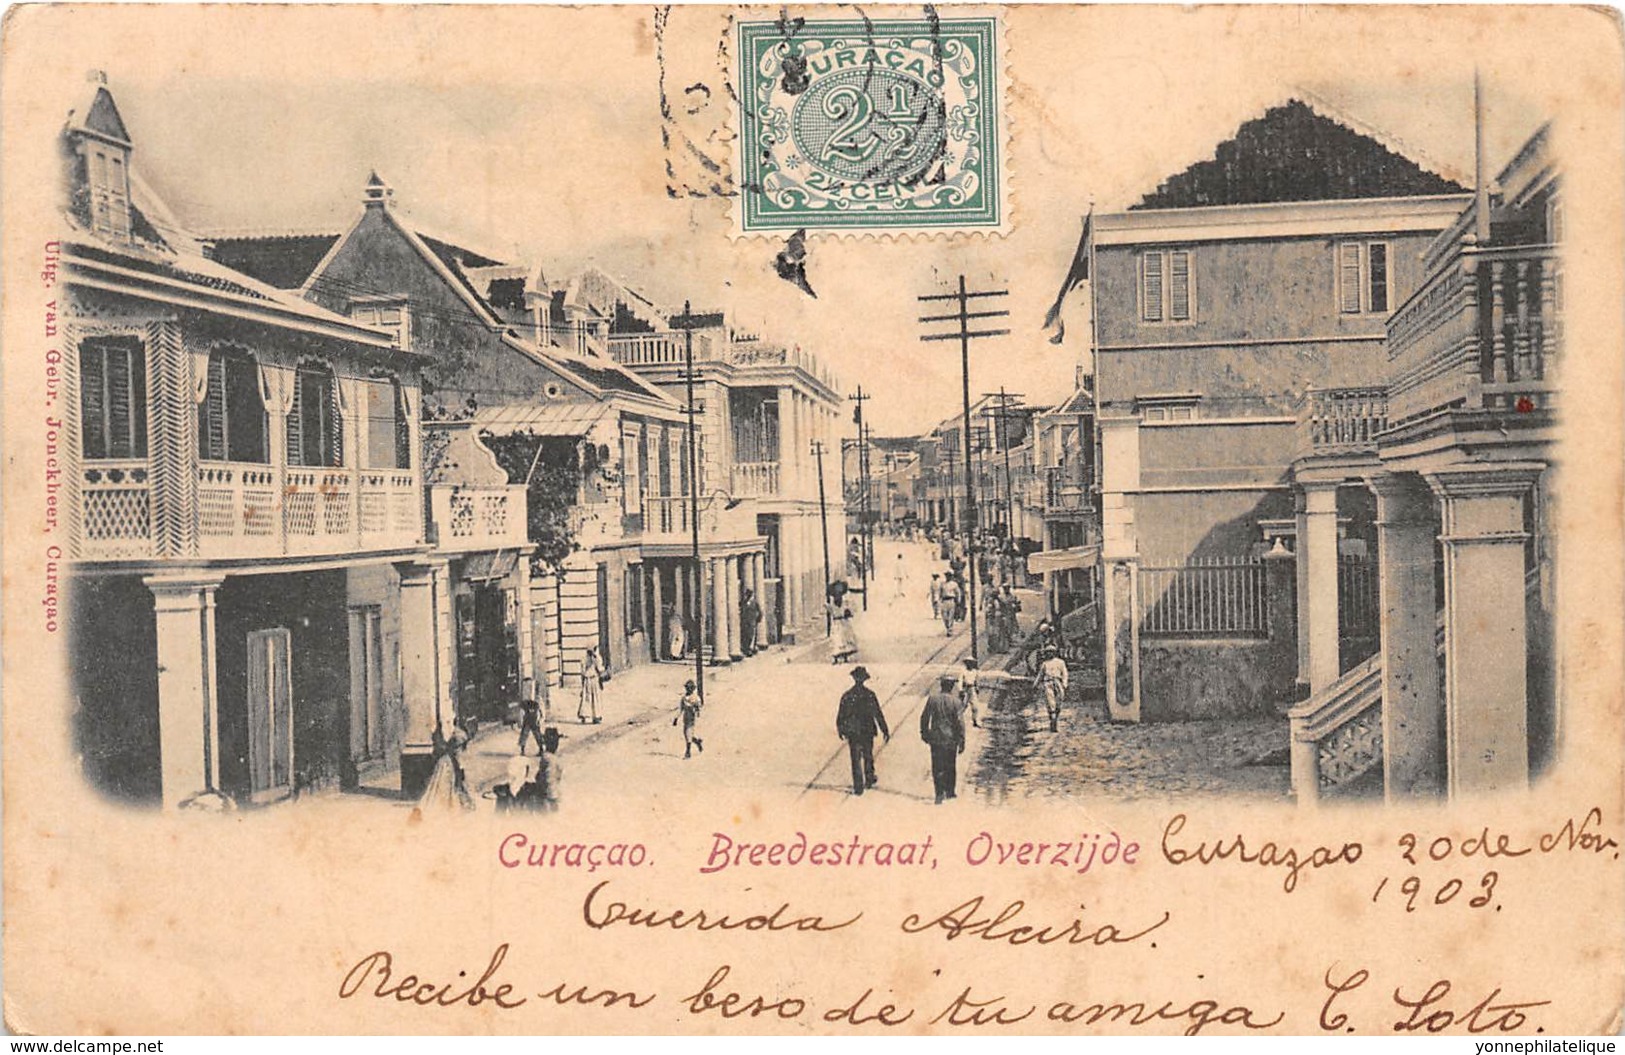 CURAÇAO
2½
2½ CENT
Uitg. van Gebr. Jonckheer, Curaçao
Curaçao. Breedestraat, Overzijde
Curazao 20 de Nov.
1903.
Querida Alcira.
Recibe un beso de tu amiga C. Soto.
delcampe.net
yonnephilatelique